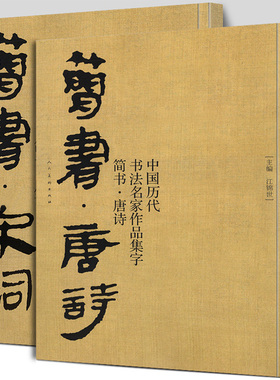 簡書·唐詩
中国历代
书法名家作品集字
简书·唐诗
主编 江锦世
人民美术出版社
書·宋詞